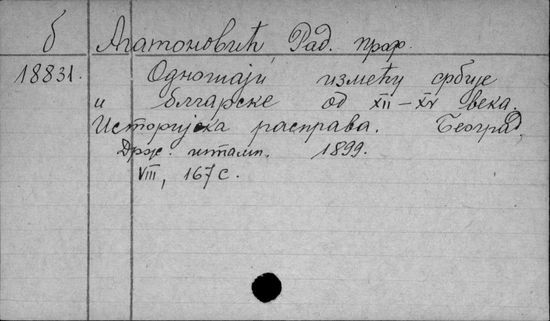 б Агатоновић Рад. проф.
18831. Одношаји између србије
и бугарске од XII–XV века.
Историјска расправа. Београд,
Држ. штамп. 1899.
VIII, 167 с.